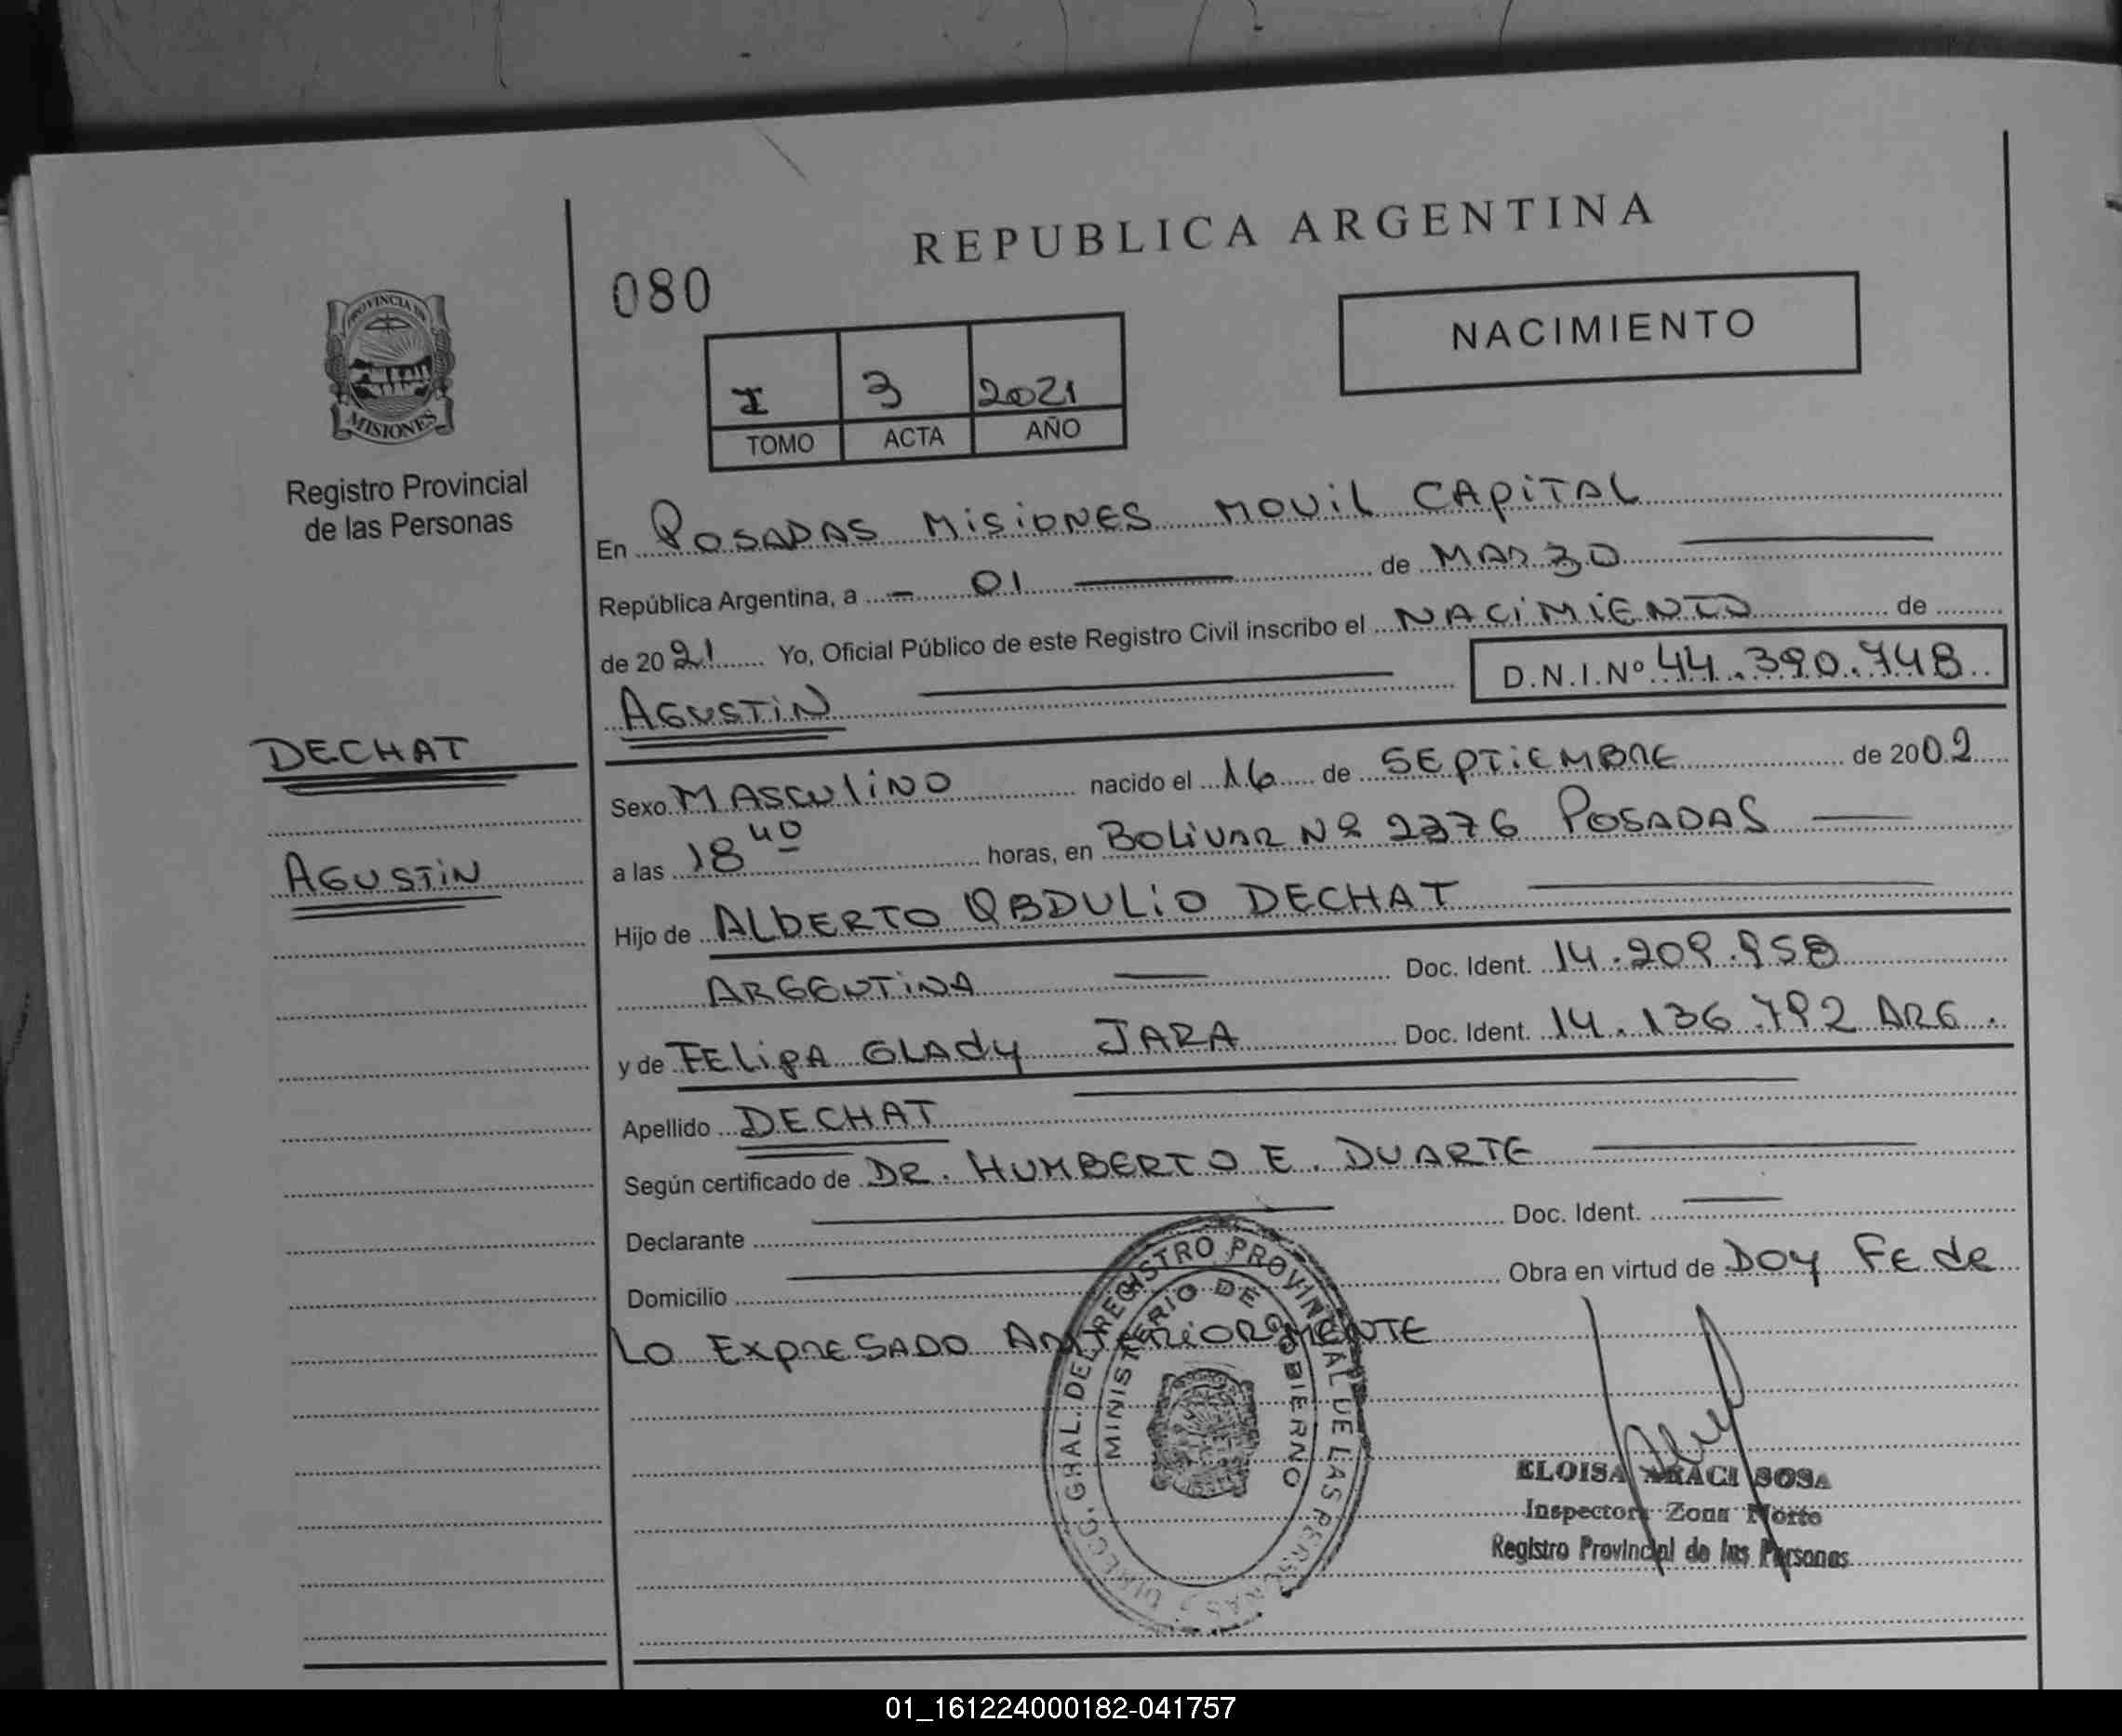 REPUBLICA ARGENTINA
080
NACIMIENTO
PROVINCIA DE
MISIONES
Registro Provincial
de las Personas
I 3 2021
TOMO ACTA AÑO
En POSADAS MISIONES MOVIL CAPITAL
República Argentina, a - 01 de MARZO
de 2021 Yo, Oficial Público de este Registro Civil inscribo el NACIMIENTO de
AGUSTIN D.N.I. Nº 44.390.748
DECHAT
Sexo MASCULINO nacido el 16 de SEPTIEMBRE de 2002
a las 18 40 horas, en BOLIVAR Nº 2376 POSADAS
AGUSTIN
Hijo de ALBERTO OBDULIO DECHAT
ARGENTINA Doc. Ident. 14.209.958
y de FELIPA GLADY JARA Doc. Ident. 14.136.792 ARG.
Apellido DECHAT
Según certificado de DR. HUMBERTO E. DUARTE
Declarante Doc. Ident.
Domicilio Obra en virtud de DOY FE de
LO EXPRESADO ANTERIORMENTE
DIRECC. GRAL. DEL REGISTRO PROVINCIAL DE LAS PERSONAS
MINISTERIO DE GOBIERNO
ELOISA ARACI SOSA
Inspectora Zona Norte
Registro Provincial de las Personas
01_161224000182-041757